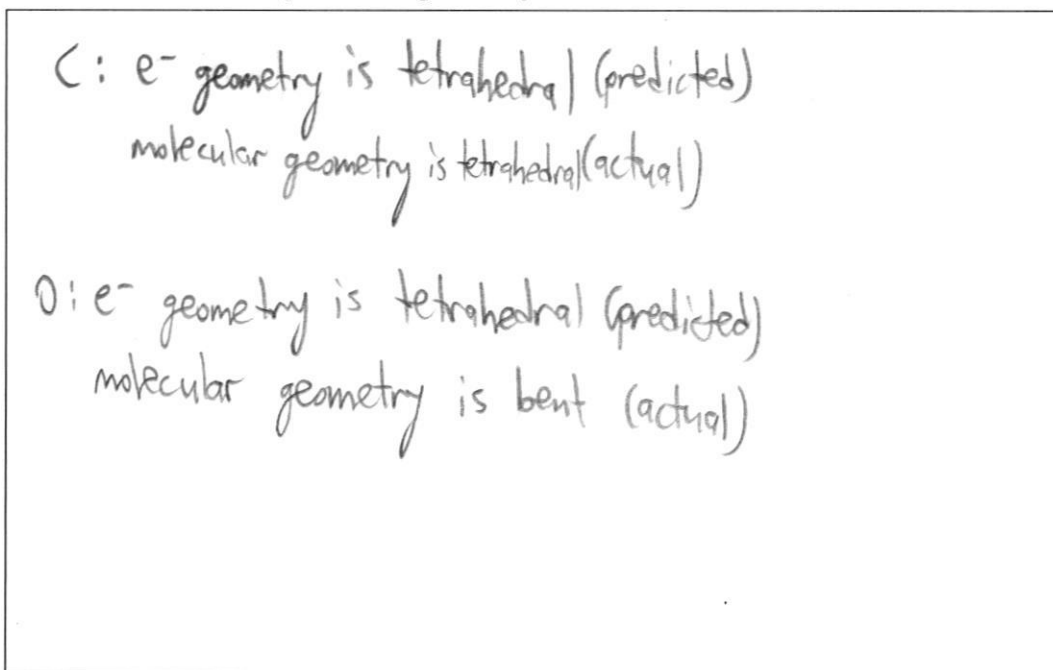 C: e⁻ geometry is tetrahedral (predicted)
molecular geometry is tetrahedral (actual)
O: e⁻ geometry is tetrahedral (predicted)
molecular geometry is bent (actual)